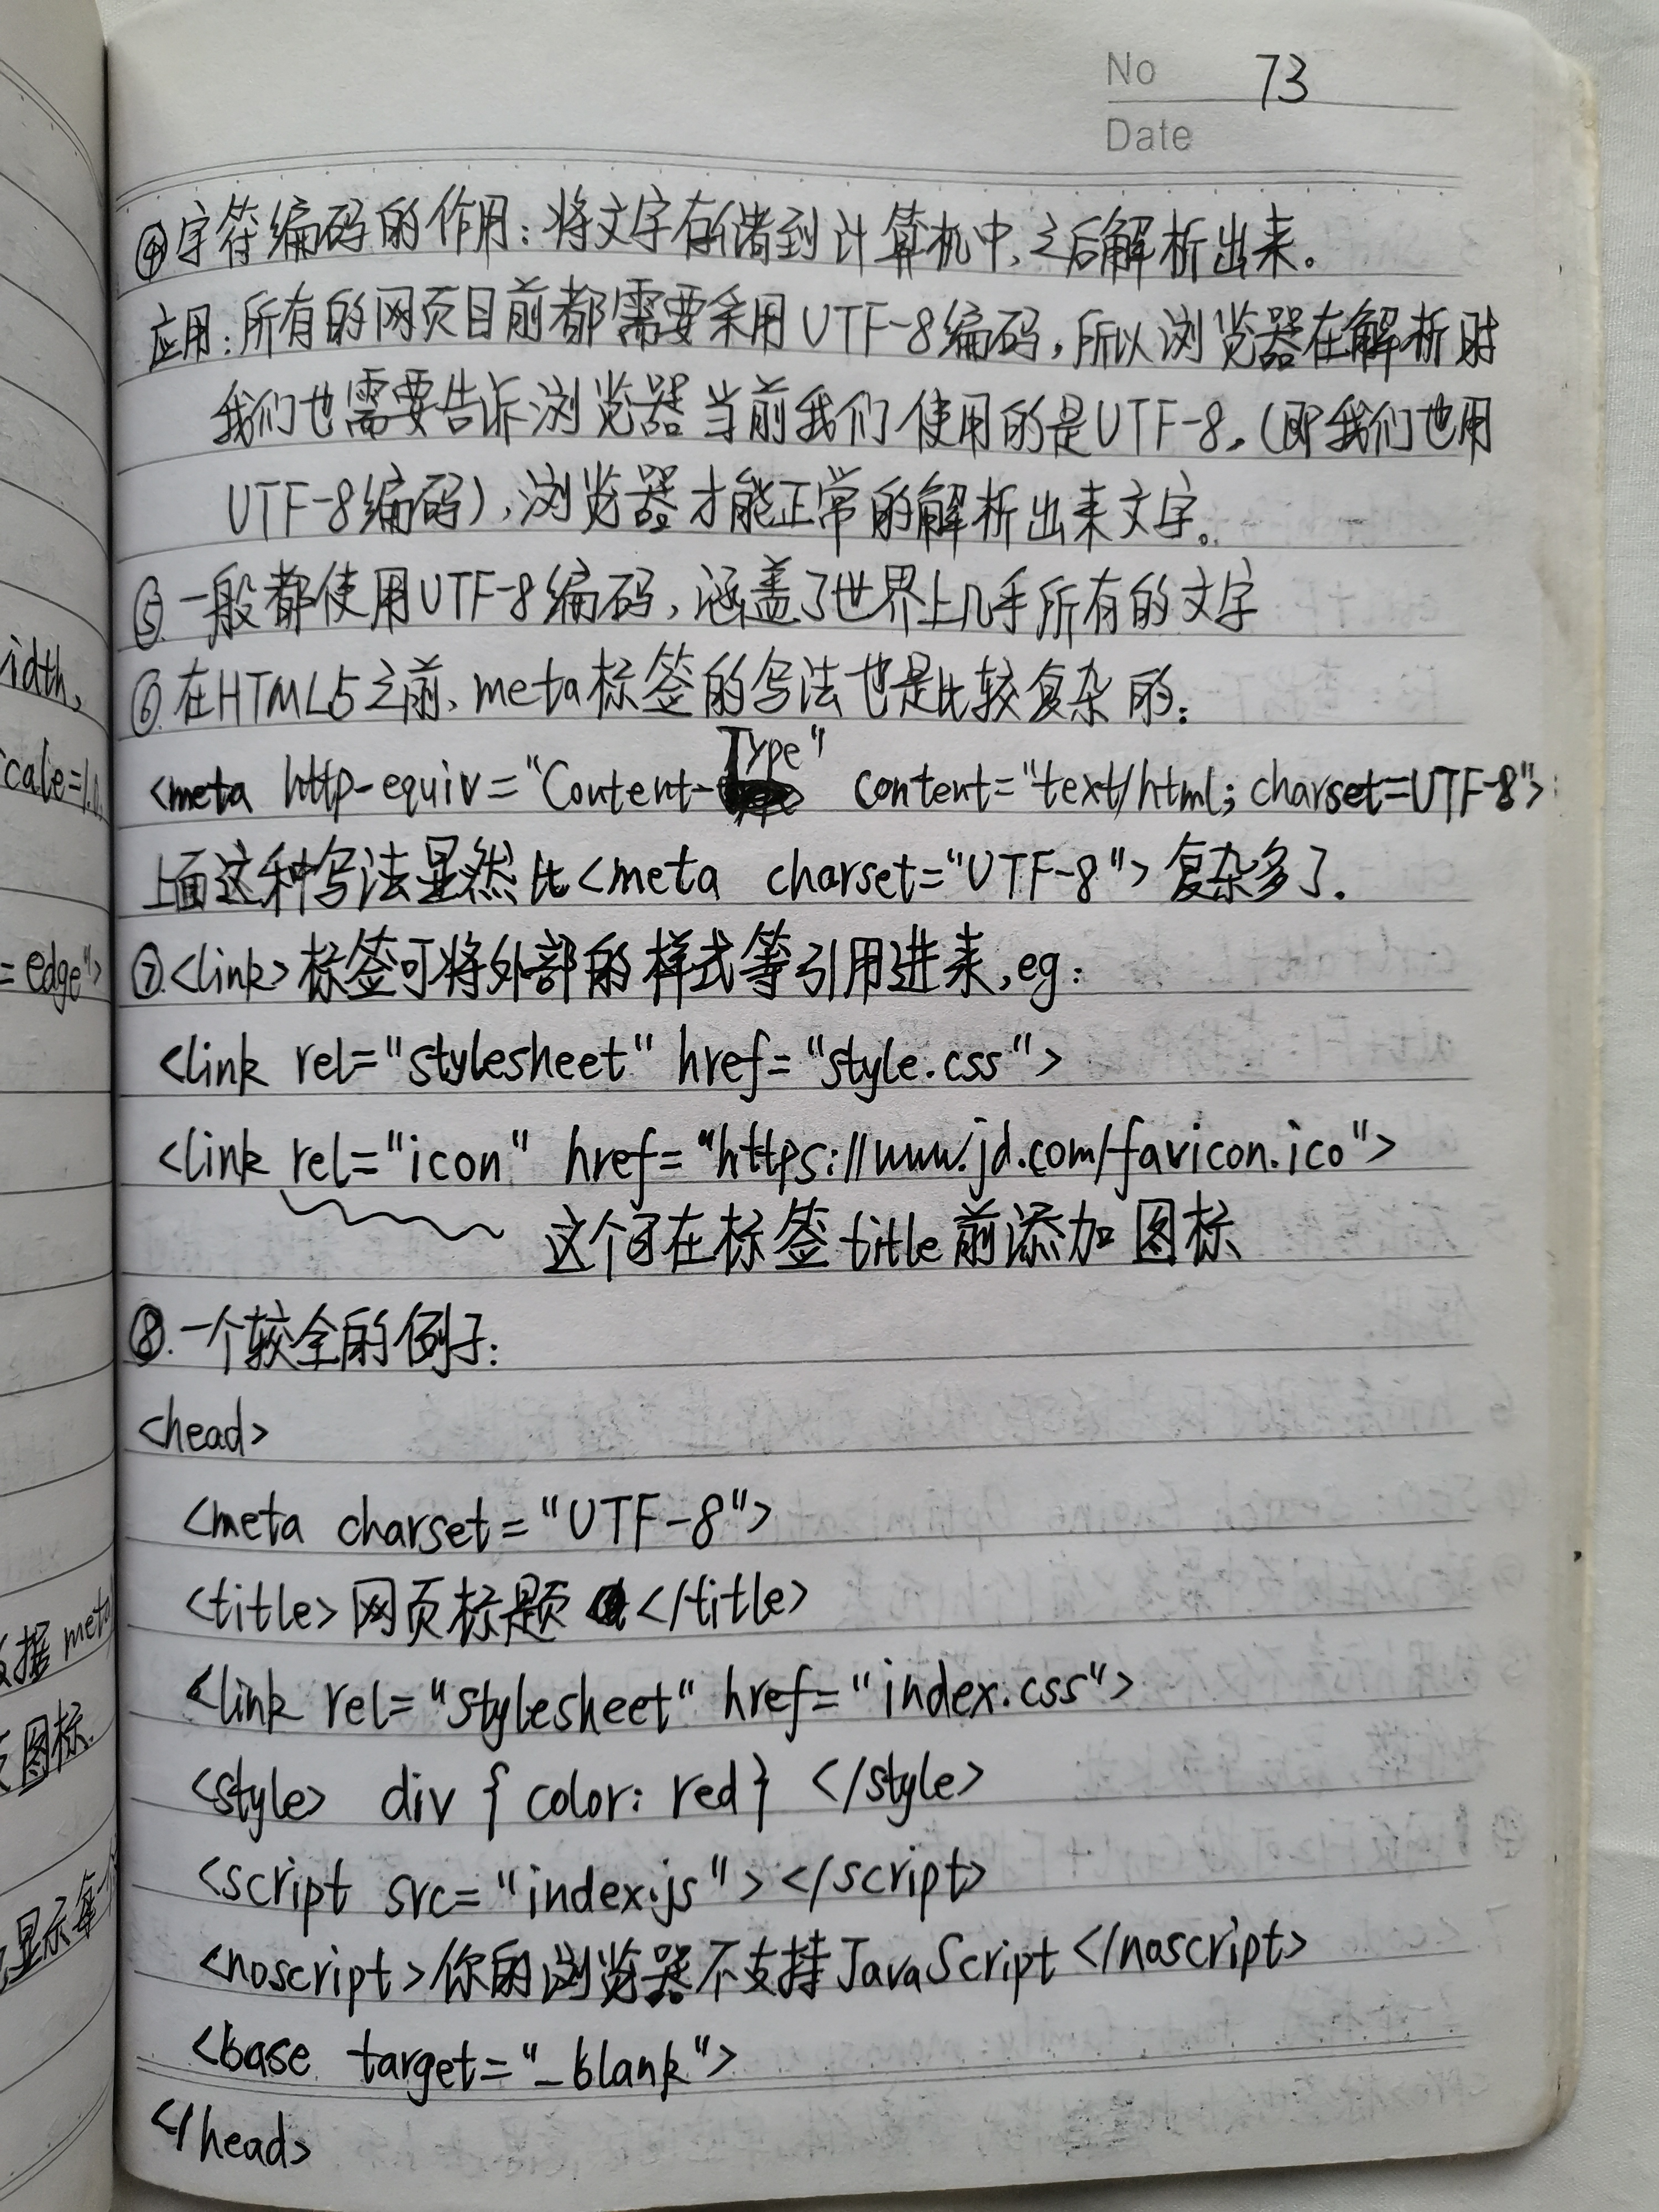 No 73
Date
④字符编码的作用:将文字存储到计算机中,之后解析出来。
应用:所有的网页目前都需要采用UTF-8编码,所以浏览器在解析时
我们也需要告诉浏览器当前我们使用的是UTF-8,(即我们也用
UTF-8编码),浏览器才能正常的解析出来文字。
⑤.一般都使用UTF-8编码,涵盖了世界上几乎所有的文字
⑥.在HTML5之前,meta标签的写法也是比较复杂的:
<meta http-equiv="Content-Type" content="text/html; charset=UTF-8">
上面这种写法显然比<meta charset="UTF-8">复杂多了.
⑦.<link>标签可将外部的样式等引用进来,eg:
<link rel="stylesheet" href="style.css">
<link rel="icon" href="https://www.jd.com/favicon.ico">
这个可在标签title前添加图标
⑧.一个较全的例子:
<head>
<meta charset="UTF-8">
<title>网页标题</title>
<link rel="stylesheet" href="index.css">
<style> div { color: red } </style>
<script src="index.js"></script>
<noscript>你的浏览器不支持JavaScript</noscript>
<base target="_blank">
</head>
idth,
cale=1.0,
=edge">
据meta
图标.
显示每一个